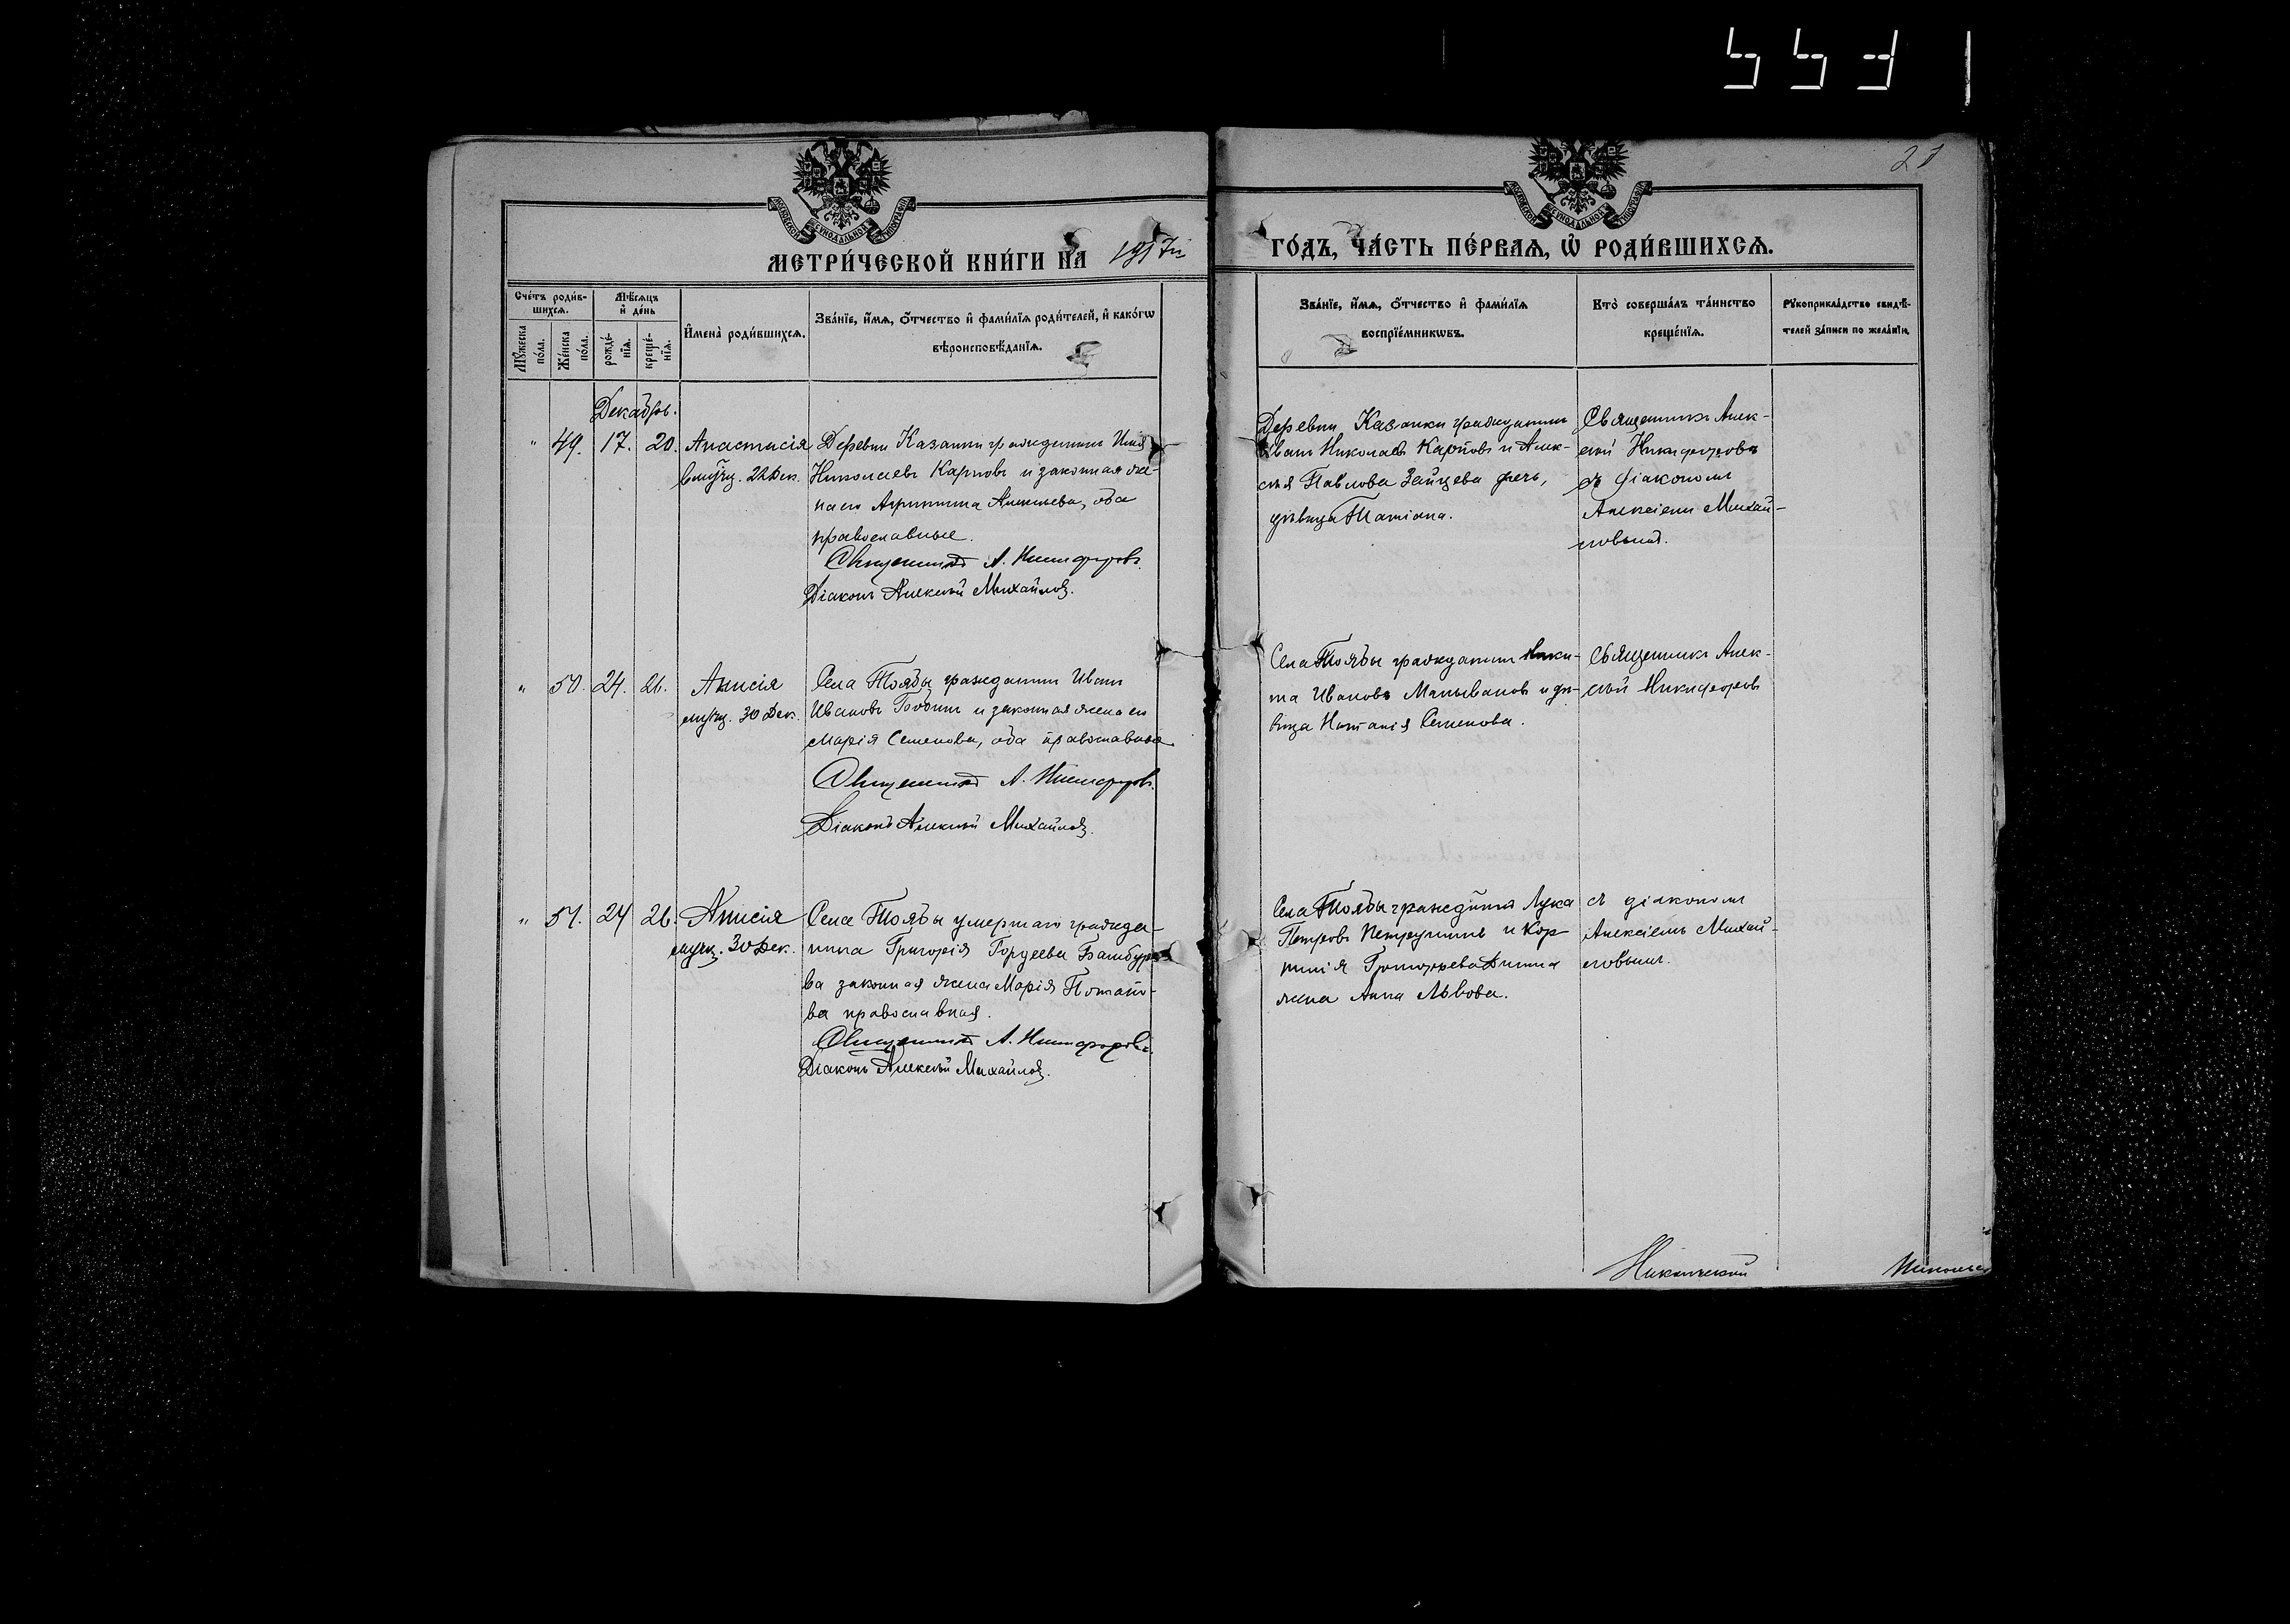 21
МЕТРИ́ЧЕСКОЙ КНИ́ГИ НА 1917й
ГО́ДЪ, ЧА́СТЬ ПЕ́РВАЯ, Ѡ҆ РОДИ́ВШИХСЯ.
Сче́тъ роди́в-
шихся.
Мѣ́сяцъ
и҆ де́нь
И҆мена̀ роди́вшихся.
Зва́нїе, и҆́мя, ѻ҆́тчество и҆ фами́лїя роди́телей, и҆ како́гѡ
вѣроисповѣ́данїя.
Мꙋ́жеска
по́ла.
Же́нска
по́ла.
рожде́-
нїя.
креще́-
нїя.
Зва́нїе, и҆́мя, ѻ҆́тчество и҆ фами́лїя
воспрїе́мникѡвъ.
Кто̀ соверша́лъ та́инство
креще́нїя.
Рꙋкоприкла́дство свидѣ́-
телей за́писи по жела́нїю.
Декабрь.
" 49. 17. 20. Анастасія
22 Дек.
Деревни Казанки гражданинъ
Николаевъ Карповъ и законная же-
на его Агрипина Алексѣева, оба
православные.
Священникъ А. Никифоровъ.
Діаконъ Алексѣй Михайловъ.
Деревни Казанки гражданинъ
Иванъ Николаевъ Карповъ и Алек-
сѣя Павлова Зайцева дочь,
дѣвица Татіана.
Священникъ Алек-
сѣй Никифоровъ
съ діакономъ
Алексіемъ Михай-
ловымъ.
" 50. 24. 26. Анисія
30 Дек.
Села Тоябы гражданинъ Иванъ
Ивановъ и законная жена его
Марія Семенова, оба православные
Священникъ А. Никифоровъ.
Діаконъ Алексѣй Михайловъ.
Села Тоябы гражданинъ Ники-
та Ивановъ и дѣ-
вица Наталія Семенова.
Священникъ Алек-
сѣй Никифоровъ
" 51. 24 26. Анисія
30 Дек.
Села Тоябы умершаго гражда-
нина Григорія Гордеева
ва законная жена Марія Потапо-
ва православная.
Священникъ А. Никифоровъ.
Діаконъ Алексѣй Михайловъ.
Села Тоябы гражданинъ Лука
Петровъ и Кор-
нилія
жена Анна Львова.
съ діакономъ
Алексіемъ Михай-
ловымъ.